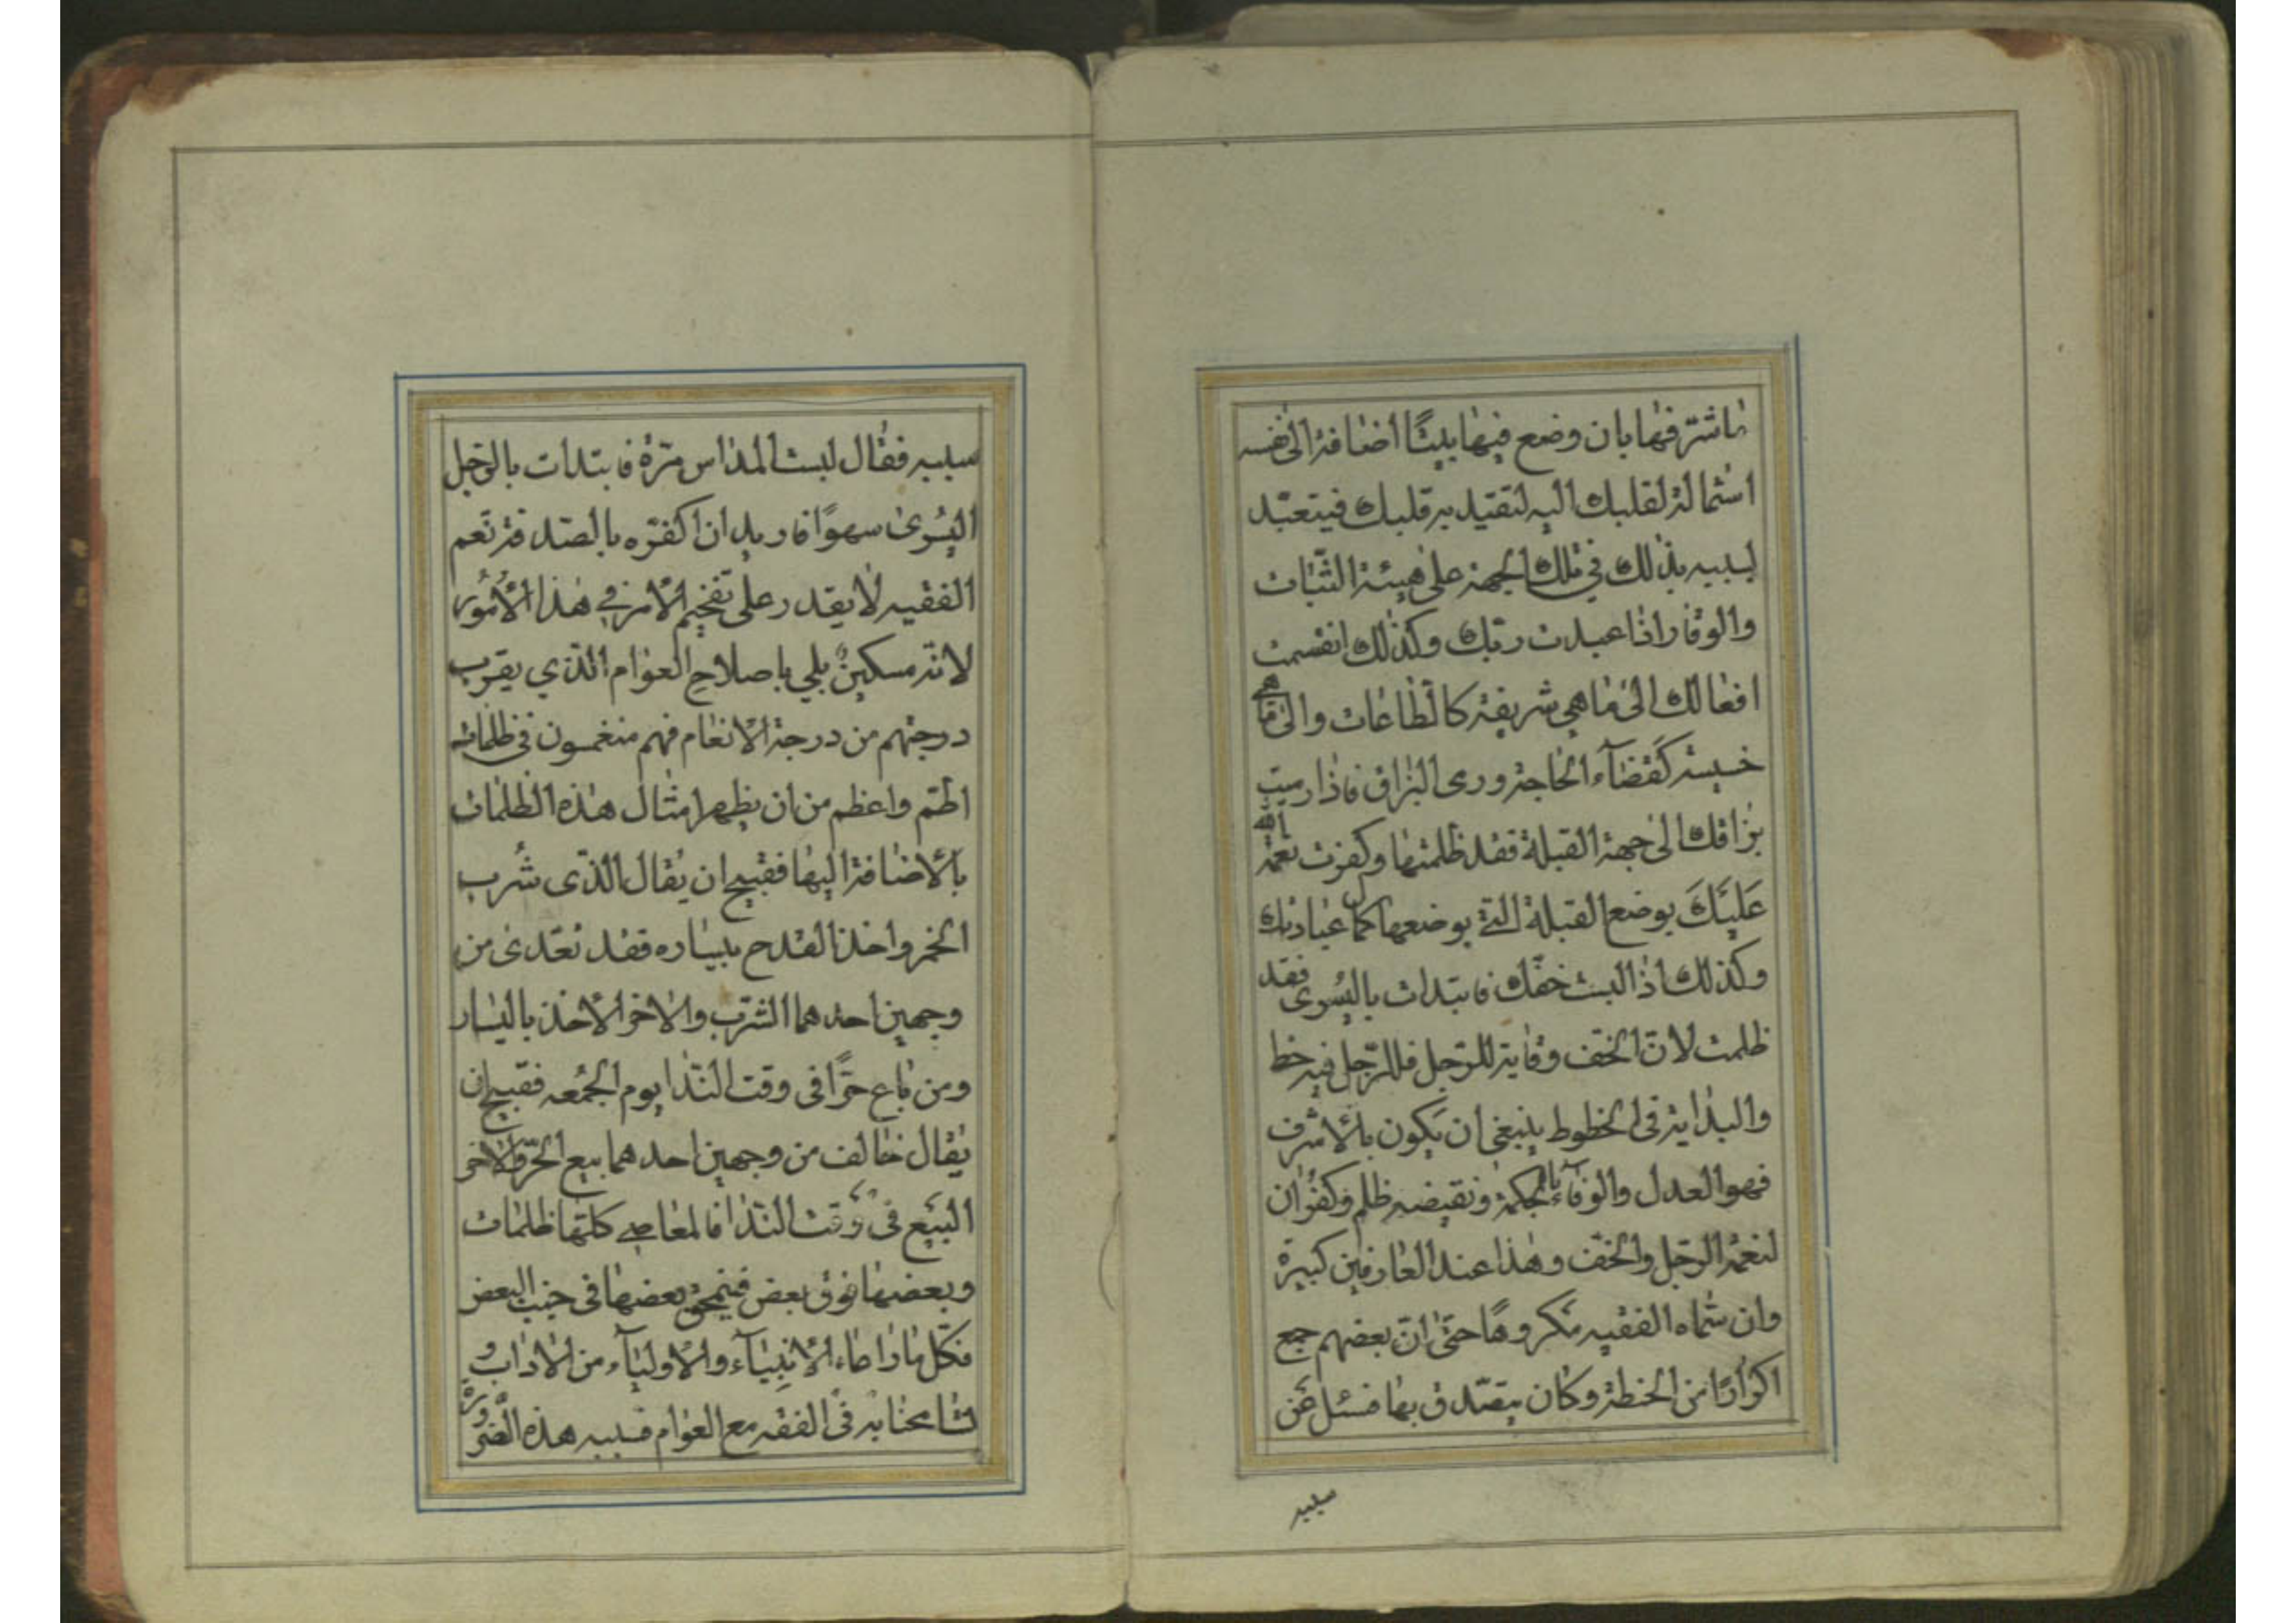 ما شرّفها بان وضع فيها بيتًا أضافة الى نفسه
استمالة لقلبك اليه لتقتيد به قلبك فيتعبّد
لسببه بذلك في تلك الجهة على هيئة الثبات
والوقار اذا عبدت ربّك وكذلك انقسمت
افعالك الى ما هي شريفة كالطاعات والى ما هي
خسيسة كقضآء الحاجة ورمى البزاق فاذا رميت
بزاقك الى جهة القبلة فقد ظلمتها وكفرت نعمة الله
عَلَيكَ بوضع القبلة التي بوضعها كمال عبادتك
وكذلك اذا لبست خفّك فابتدات باليُسرى فقد
ظلمت لانّ الخفّ وقاية للرّجل فللرّجل فيه حظ
والبداية في الحظوط ينبغى ان يكون بالأشرف
فهو العدل والوفآء بالحكمة ونقيضه ظلم وكفران
لنعمة الرّجل والخفّ وهذا عند العارفين كبيرة
وان سمّاه الفقيه مكروهًا حتّى انّ بعضهم جمع
اكوارًا من الحنطة وكان يتصدّق بها فسئل عن
سببه
سببه فقال لبست المداس مرّة فابتدات بالرّجل
اليُسرى سهوًا فاريد ان اكفرّه بالصدقة نعم
الفقيه لا يقدر على تفخيم الأمر في هذا الأمُور
لانّه مسكينٌ بلي باصلاح العوام الذي يقرب
درجتهم من درجة الانعام فهم منغمسون في ظلمات
اطمّ واعظم من ان يظهر امثال هذه الظلمات
بالأضافة اليها فقبيح ان يقال الذّى شُرب
الخمر واخذ القدح بيساره فقد تعدّى من
وجهين احدهما الشرب والاخر الأخذ باليسار
ومن باع حرًّا في وقت النّدا يوم الجمُعه فقبيح ان
يقال خالف من وجهين احدهما بيع الحرّ والاخر
البيع في وقت النّدا فالمعاصي كلّها ظلمات
وبعضها فوق بعض فينمحق بعضها في جنب البعض
فكّل ما راعاه الأنبيآء والأوليآء من الاداب و
تسامحنا به في الفقه مع العوام فسببه هذه الضّرورة